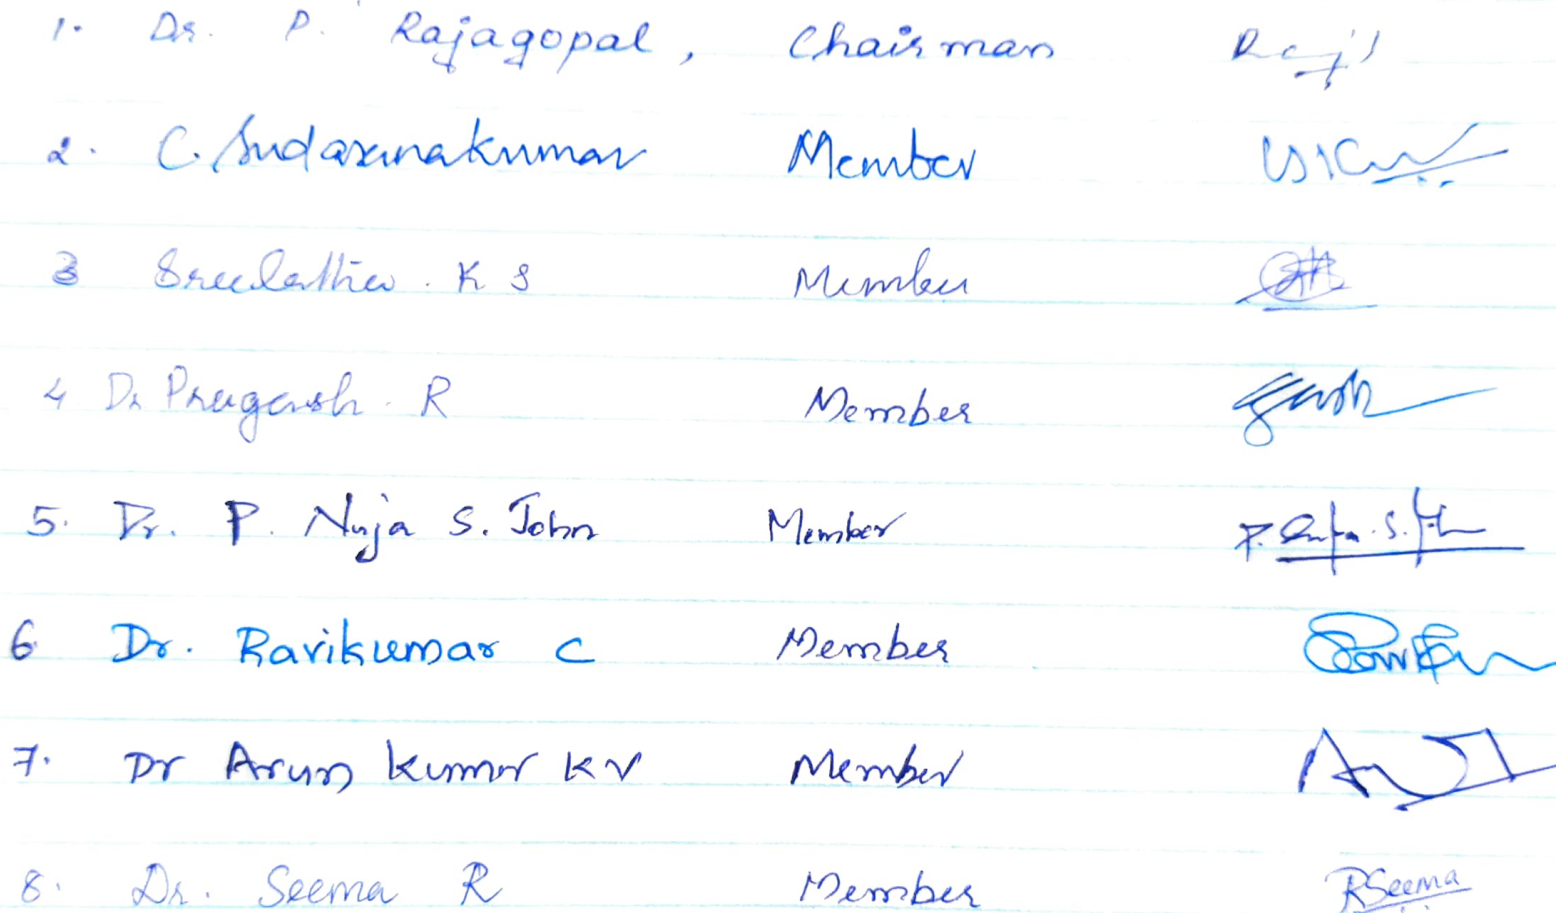 1. Dr. P. Rajagopal, Chairman
2. C. Sudarsanakumar Member
3 Sreelatha. K S Member
4 Dr Pragash. R Member gash
5. Dr. P. Nuja S. John Member P. Nuja. S. John
6 Dr. Ravikumar C Member
7. Dr Arun Kumar K V Member
8. Dr. Seema R Member RSeema